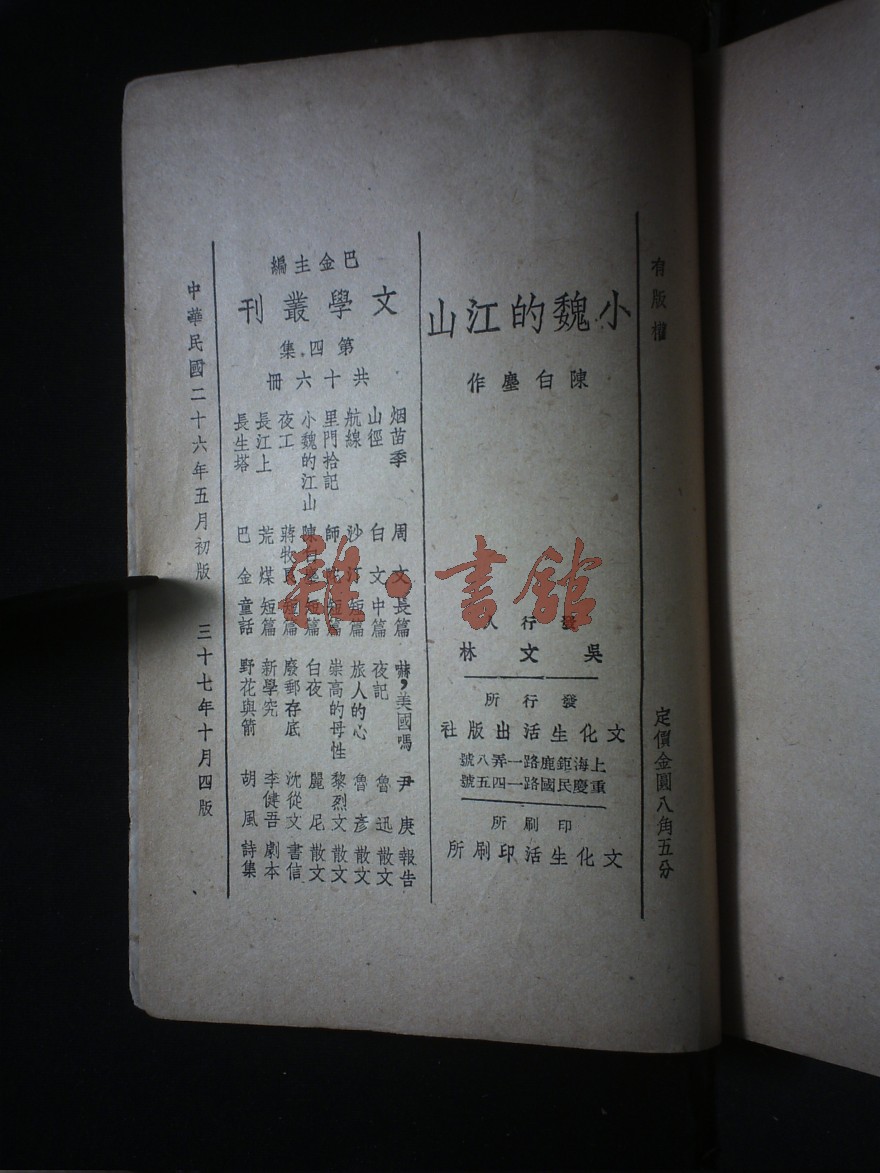 有版權
定價金圓八角五分
小魏的江山
陳白塵作
發行人
吳文林
發行所
文化生活出版社
上海鉅鹿路一弄八號
重慶民國路一四五號
印刷所
文化生活印刷所
巴金主編
文學叢刊
第四集
共十六冊
烟苗季 周文 長篇
山徑 白文 中篇
航線 沙汀 短篇
里門拾記 師陀 短篇
小魏的江山 陳白塵 短篇
夜工 蔣牧良 短篇
長江上 荒煤 短篇
長生塔 巴金 童話
嚇，美國嗎 尹庚 報告
夜記 魯迅 散文
旅人的心 魯彥 散文
崇高的母性 黎烈文 散文
白夜 麗尼 散文
廢郵存底 沈從文 書信
新學究 李健吾 劇本
野花與箭 胡風 詩集
中華民國二十六年五月初版 三十七年十月四版
雜·書館